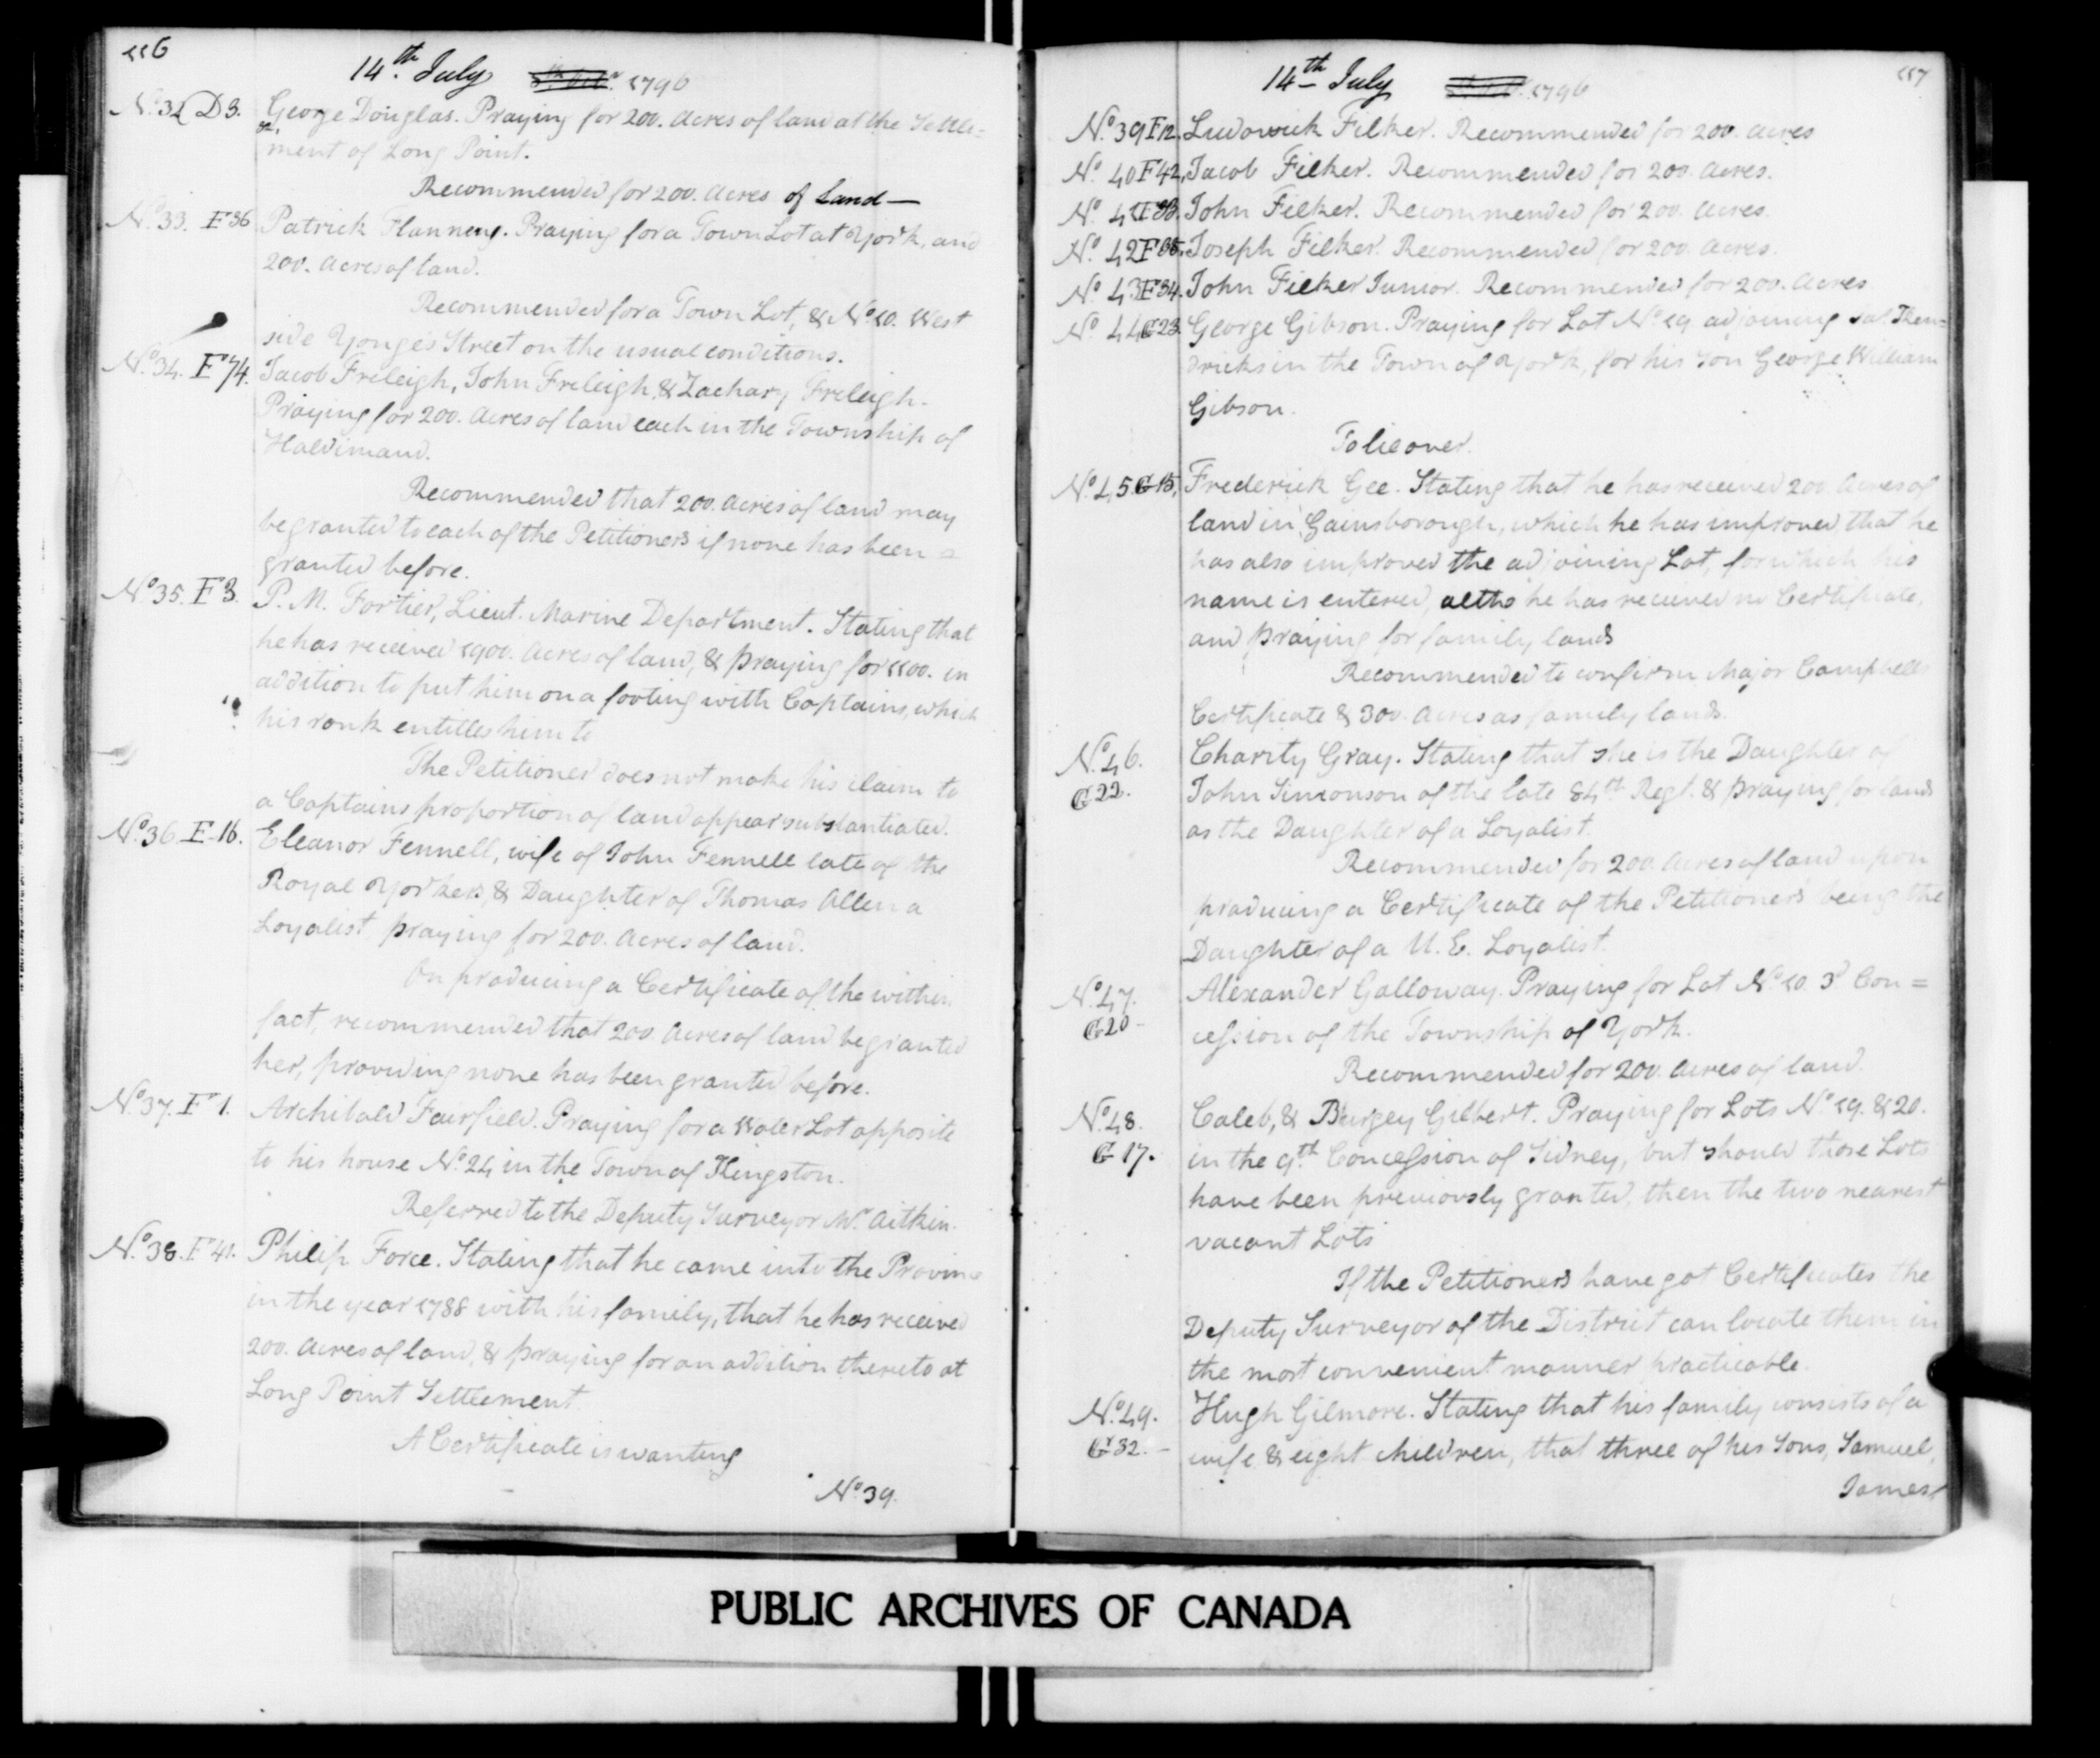 116
14th. July 1796
No. 32 D3. George Douglas. Praying for 200. Acres of land at the Settle=
ment of Long Point.
Recommended for 200. Acres of Land —
No. 33. F 36 Patrick Flannery. Praying for a Town Lot at York, and
200. Acres of land.
Recommended for a Town Lot, & No. 10. West
side Yonge's Street on the usual conditions.
No. 34. F 74. Jacob Freleigh, John Freleigh & Zachary Freleigh.
Praying for 200. Acres of land each in the Township of
Haldimand.
Recommended that 200. Acres of land may
be granted to each of the Petitioners if none has been =
granted before.
No. 35. F 3. P. M. Fortier, Lieut. Marine Department. Stating that
he has received 1900. Acres of land, & praying for 1100. in
addition to put him on a footing with Captains, which
his rank entitles him to
The Petitioner does not make his claim to
a Captains proportion of land appear substantiated.
No. 36. F-16. Eleanor Fennell, wife of John Fennell late of the
Royal Yorkers, & Daughter of Thomas Allen a
Loyalist praying for 200. Acres of land.
On producing a Certificate of the within
fact, recommended that 200 Acres of land be granted
her, providing none has been granted before.
No. 37. F 1. Archibald Fairfield. Praying for a Water Lot opposite
to his house No. 24 in the Town of Kingston.
Referred to the Deputy Surveyor Mr. Aitkin.
No. 38. F 41. Philip Force. Stating that he came into the Province
in the year 1788 with his family, that he has received
200. Acres of land, & praying for an addition thereto at
Long Point Settlement
A Certificate is wanting
No. 39.
117
14th July 1796
No. 39 F12. Ludowick Filker. Recommended for 200. Acres
No. 40 F42. Jacob Filker. Recommended for 200. Acres.
No. 41 F33. John Filker. Recommended for 200. Acres.
No. 42 F35. Joseph Filker. Recommended for 200. Acres.
No. 43 F34. John Filker Junior. Recommended for 200. Acres
No. 44 G23. George Gibson. Praying for Lot No. 19 adjoining Hen=
dricks in the Town of York, for his Son George William
Gibson.
To lie over.
No. 45 G15. Frederick Gee. Stating that he has received 200 Acres of
land in Gainsborough, which he has improved, that he
has also improved the adjoining Lot, for which his
name is entered, altho he has received no Certificate,
and praying for family lands
Recommended to confirm Major Campbells
Certificate & 300. Acres as family lands.
No. 46. Charity Gray. Stating that she is the Daughter of
G 22. John Simonson of the late 84th Regt. & praying for lands
as the Daughter of a Loyalist.
Recommended for 200. Acres of land upon
producing a Certificate of the Petitioners being the
Daughter of a U. E. Loyalist.
No. 47. Alexander Galloway. Praying for Lot No. 10. 3d Con =
G 20 - cession of the Township of York.
Recommended for 200. Acres of land.
No. 48. Caleb, & Burgey Gilbert. Praying for Lots No. 19. & 20.
G 17. in the 9th. Concession of Sidney, but should those Lots
have been previously granted, then the two nearest
vacant Lots
If the Petitioners have got Certificates the
Deputy Surveyor of the District can locate them in
the most convenient manner practicable.
No. 49. Hugh Gilmore. Stating that his family consists of a
G 32. - wife & eight children, that three of his Sons, Samuel,
James,
PUBLIC ARCHIVES OF CANADA